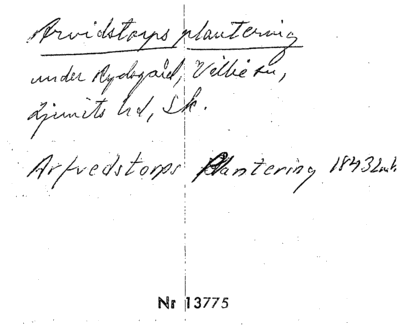 Arvidstorps plantering
under Rydsgård, Villie sn,
Ljunits hd, Sk.
Arfvedstorps Plantering 1843
Nr 13775